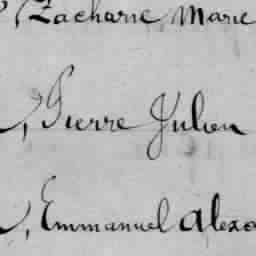 , Zacharie Marie
, Pierre Julien
, Emmanuel Alexa